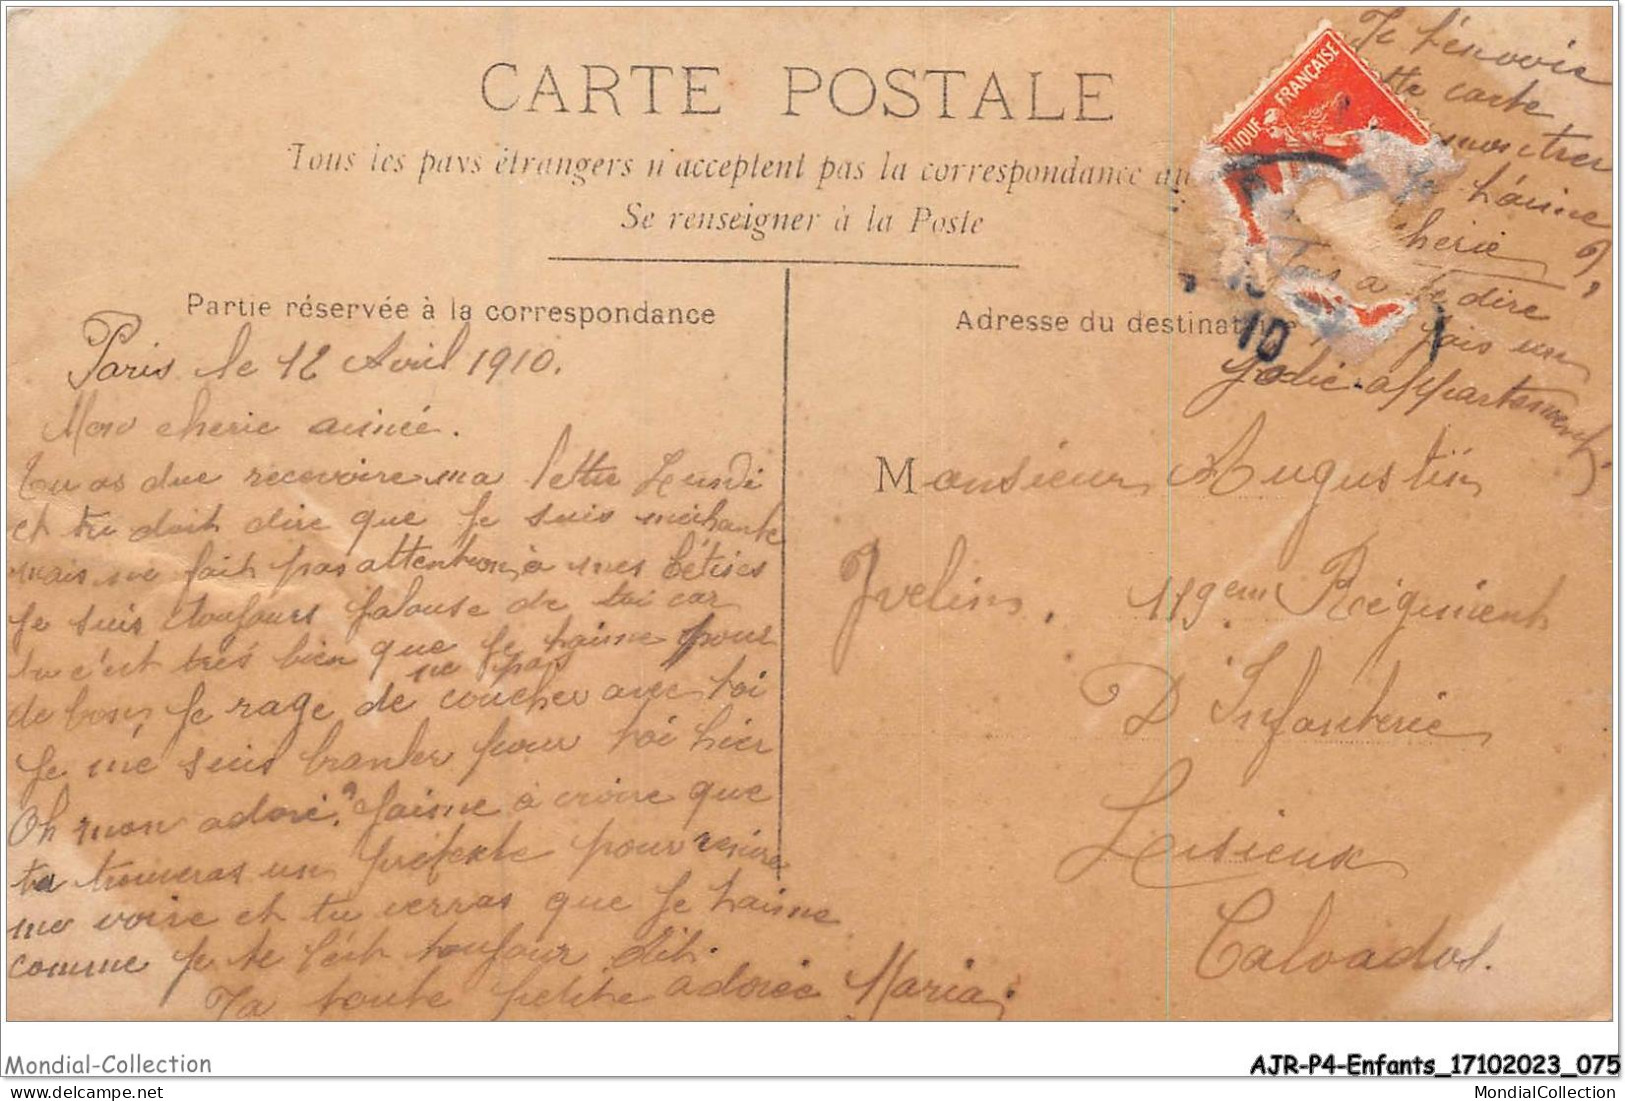 CARTE POSTALE
Tous les pays étrangers n'acceptent pas la correspondance au
Se renseigner à la Poste
RÉPUBLIQUE FRANÇAISE
10
Je t'envoie
cette carte
montrer
je t'aime
cherie
a te dire
fais un
Jolie appartement
Partie réservée à la correspondance
Paris le 12 Avril 1910.
Mon cherie aimée.
Tu as due recevoire ma lettre Lundi
et tu doit dire que je suis méchante
mais ne fait pas attention à mes bêtises
Je suis toujours jalouse de toi car
tu c'est très bien que je t'aime pour
ne pas
de bon je rage de coucher avec toi
Je mé suis branler pour toi hier
Oh mon adoré? j'aime à croire que
tu trouveras un prétexte pour venire
me voire et tu verras que je t'aime
comme je te l'ést toujour dit.
Ta toute petite adorée Maria.
Adresse du destinataire
Monsieur Augustin
Yvelin. 119em Régiment
D'Infanterie
Lisieux
Calvados.
Mondial-Collection
AJR-P4-Enfants_17102023_075
MondialCollection